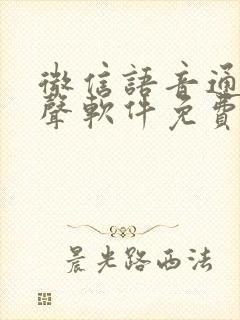 微信語音通
聲軟件免費
晨光路西法